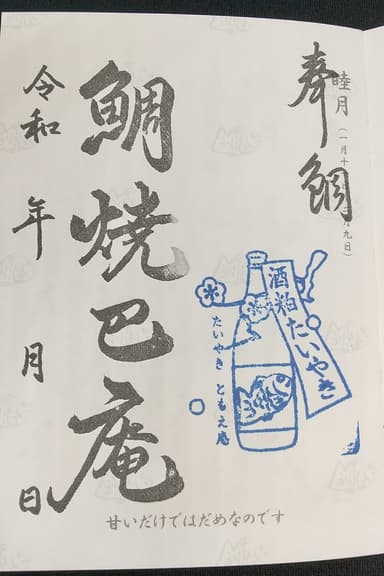 奉鯛
睦月
鯛焼巴庵
令和 年 月 日
酒粕たいやき
たいやき ともえ庵
甘いだけではだめなのです